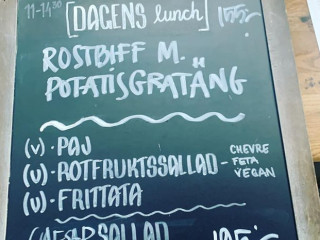 11-14³⁰ [DAGENS lunch] 155:-
ROSTBIFF M.
POTATISGRATÄNG
(V) · PAJ
(V) · ROTFRUKTSSALLAD - CHEVRE
- FETA
VEGAN
(V) · FRITTATA
SALLAD